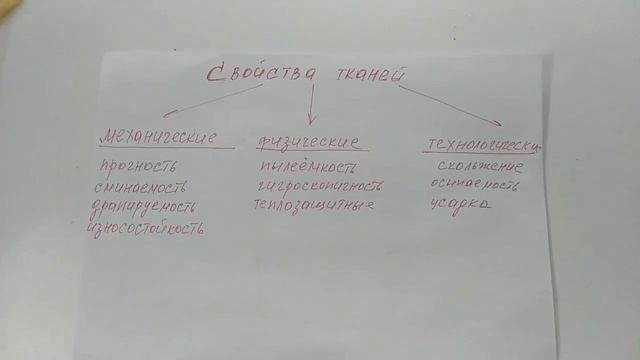 Свойства тканей
механические
прочность
сминаемость
драпируемость
износостойкость
физические
пылеёмкость
гигроскопичность
теплозащитные
технологически
скольжение
осыпаемость
усадка